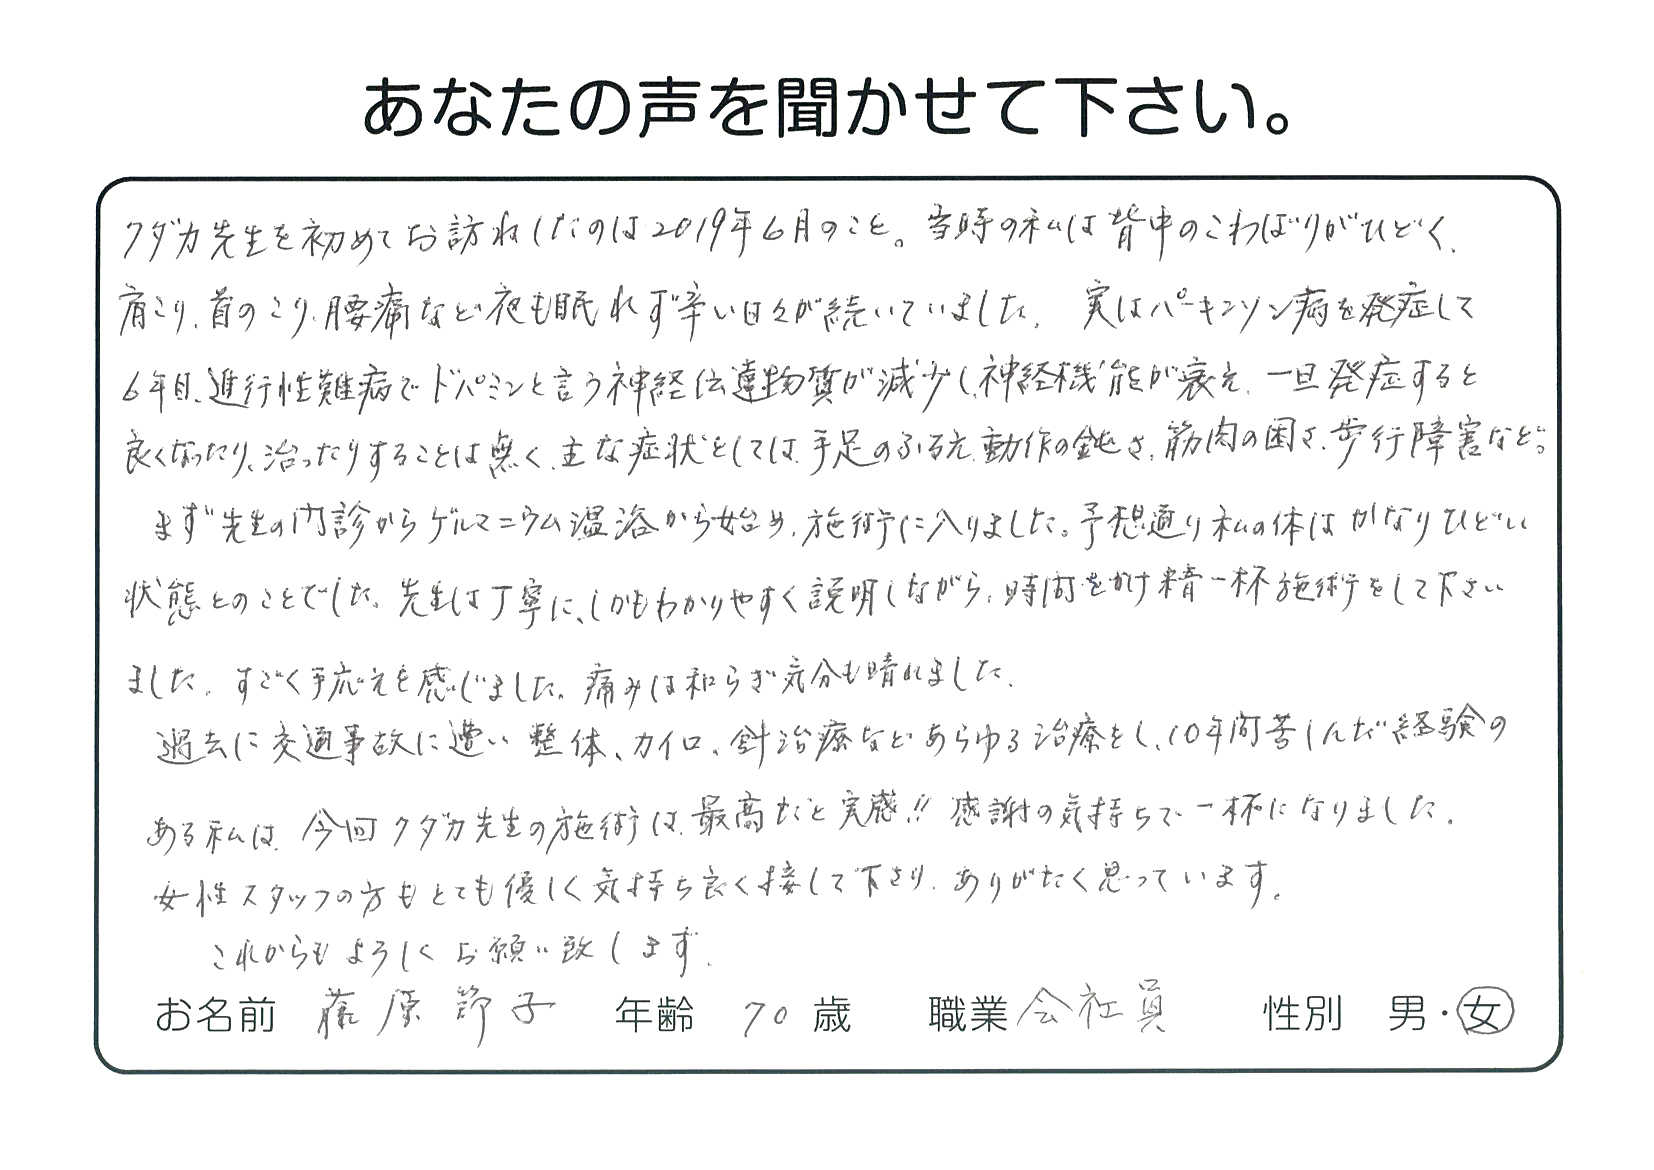 あなたの声を聞かせて下さい。
クダカ先生を初めてお訪ねしたのは2019年6月のこと。当時の私は背中のこわばりがひどく、
肩こり、首のこり、腰痛など夜も眠れず辛い日々が続いていました。実はパーキンソン病を発症して
6年目、進行性難病でドパミンと言う神経伝達物質が減少し、神経機能が衰え、一旦発症すると
良くなったり、治ったりすることは無く、主な症状としては、手足のふるえ、動作の鈍さ、筋肉の固さ、歩行障害など。
まず先生の内診からゲルマニウム温浴から始め、施術に入りました。予想通り私の体はかなりひどい
状態とのことでした。先生は丁寧に、しかもわかりやすく説明しながら、時間をかけ精一杯施術をして下さい
ました。すごく手応えを感じました。痛みは和らぎ気分も晴れました。
過去に交通事故に遭い整体、カイロ、針治療などあらゆる治療をし、10年間苦しんだ経験の
ある私は、今回クダカ先生の施術は、最高だと実感!! 感謝の気持ちで一杯になりました。
女性スタッフの方もとても優しく気持ち良く接して下さり、ありがたく思っています。
これからもよろしくお願い致します。
お名前 藤原節子 年齢 70歳 職業 会社員 性別 男・女